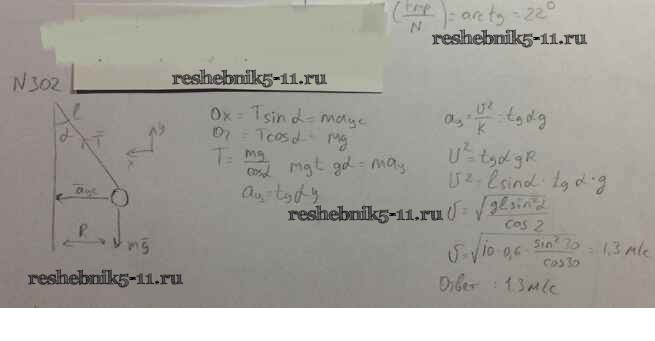 (Fтр/N) = arctg = 22°
reshebnik5-11.ru
N302
reshebnik5-11.ru
l
α
T
y
x
aцс
R
mg
Ox = T sin α = maцс
Oy = T cos α = mg
T = mg/cosα mgt gα = maц
aцs = tg α g
reshebnik5-11.ru
aц = U²/R = tg α g
U² = tg α g R
U² = l sin α · tg α · g
U = √(gl sin²α / cos 2)
U = √(10 · 0,6 · sin²30 / cos30) = 1,3 м/с
Ответ : 1,3 м/с
reshebnik5-11.ru